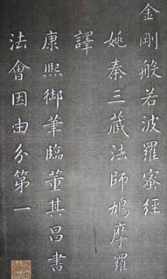 金剛般若波羅蜜經
姚秦三藏法師鳩摩羅
譯
康熙御筆臨董其昌書
法會因由分第一